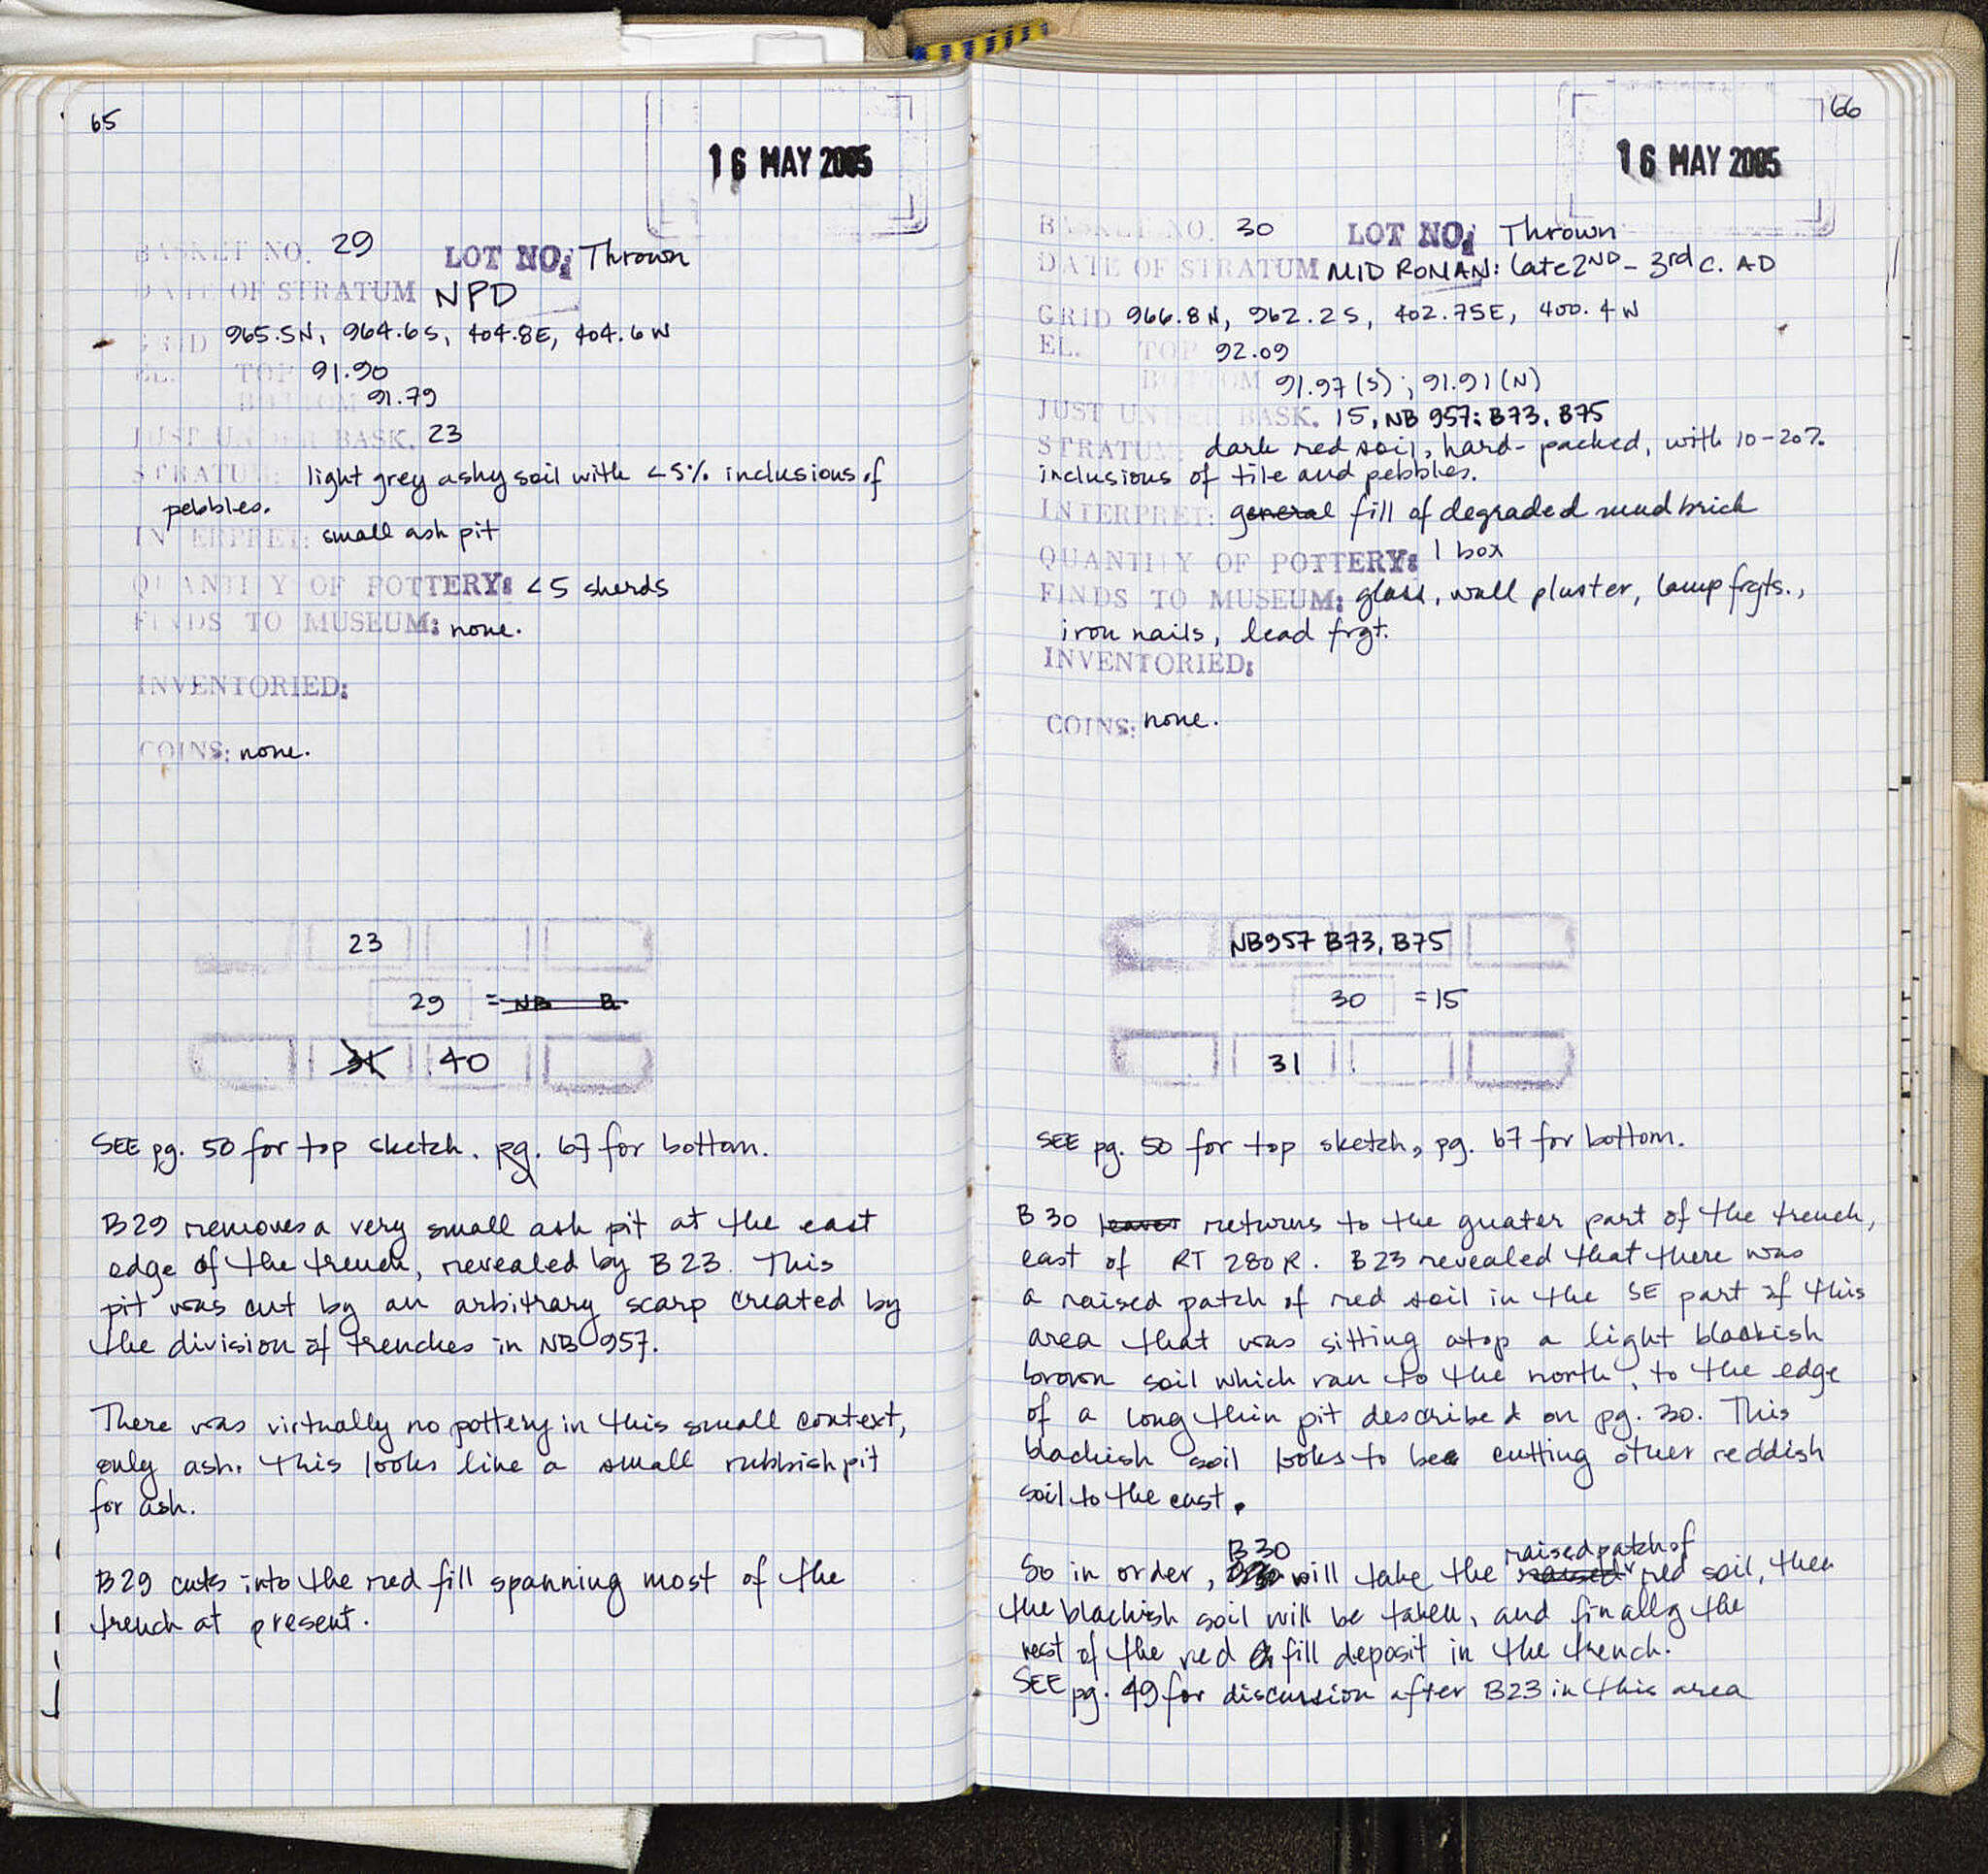 65
16 MAY 2005
BASKET NO. 29 LOT NO: Thrown
DATE OF STRATUM NPD
GRID 965.5N, 964.6S, 404.8E, 404.6W
EL. TOP 91.90
BOTTOM 91.79
JUST UNDER BASK. 23
STRATUM: light grey ashy soil with <5% inclusions of
pebbles.
INTERPRET: small ash pit
QUANTITY OF POTTERY: <5 sherds
FINDS TO MUSEUM: none.
INVENTORIED:
COINS: none.
23
29 = NB B
31 40
SEE pg. 50 for top sketch. pg. 67 for bottom.
B29 removes a very small ash pit at the east
edge of the trench, revealed by B23. This
pit was cut by an arbitrary scarp created by
the division of trenches in NB 957.
There was virtually no pottery in this small context,
only ash. This looks like a small rubbish pit
for ash.
B29 cuts into the red fill spanning most of the
trench at present.
66
16 MAY 2005
BASKET NO. 30 LOT NO: Thrown
DATE OF STRATUM MID ROMAN: late 2ND - 3rd C. AD
GRID 966.8N, 962.2S, 402.75E, 400.4W
EL. TOP 92.09
BOTTOM 91.97 (S); 91.91 (N)
JUST UNDER BASK. 15, NB 957: B73, B75
STRATUM: dark red soil, hard-packed, with 10-20%
inclusions of tile and pebbles.
INTERPRET: general fill of degraded mud brick
QUANTITY OF POTTERY: 1 box
FINDS TO MUSEUM: glass, wall plaster, lamp frgts.,
iron nails, lead frgt.
INVENTORIED:
COINS: none.
NB957 B73, B75
30 = 15
31
SEE pg. 50 for top sketch, pg. 67 for bottom.
B30 leaves returns to the greater part of the trench,
east of RT 280R. B23 revealed that there was
a raised patch of red soil in the SE part of this
area that was sitting atop a light blackish
brown soil which ran to the north, to the edge
of a long thin pit described on pg. 30. This
blackish soil looks to be cutting other reddish
soil to the east.
So in order, B30 will take the raised patch of red soil, then
the blackish soil will be taken, and finally the
rest of the red fill deposit in the trench.
SEE pg. 49 for discussion after B23 in this area